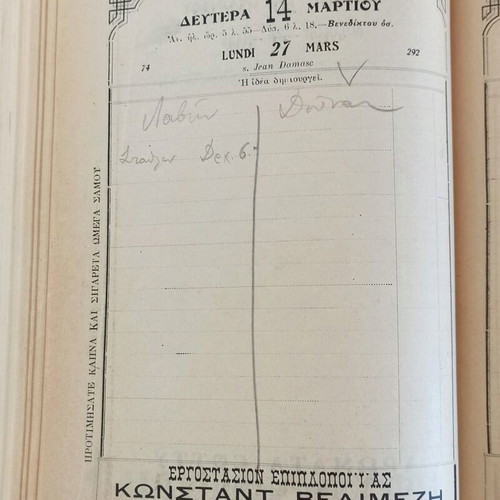 ΔΕΥΤΕΡΑ 14 ΜΑΡΤΙΟΥ
Ἀν. ἡλ. ὥρ. 5 λ. 55—Δύσ. 6 λ. 18.—Βενεδίκτου ὁσ.
LUNDI 27 MARS
74 s. Jean Damasc 292
Ἡ ἰδέα δημιουργεῖ.
Λαβεῖν Δοῦναι
Δρχ. 6.
ΠΡΟΤΙΜΗΣΑΤΕ ΚΑΠΝΑ ΚΑΙ ΣΙΓΑΡΕΤΑ ΩΜΕΓΑ ΣΑΜΟΥ
ΕΡΓΟΣΤΑΣΙΟΝ ΕΠΙΠΛΟΠΟΙΪΑΣ
ΚΩΝΣΤΑΝΤ ΒΕΛΙΜΕΖΗ